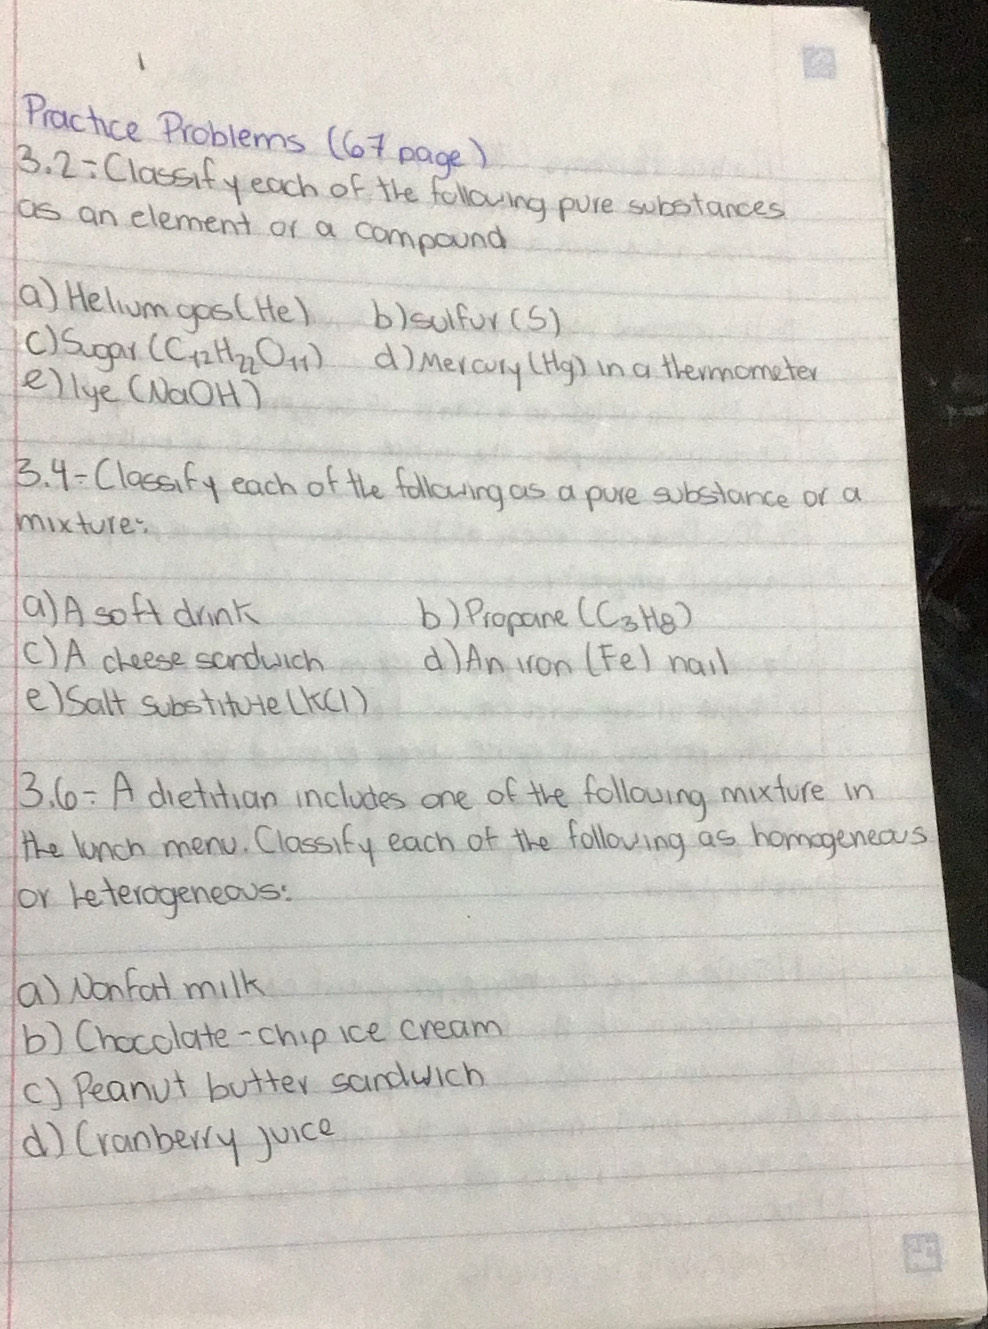 Practice Problems (67 page)
3.2- Classify each of the following pure substances
as an element or a compound
a) Helium gas (He) b) sulfur (S)
c) Sugar (C12H22O11) d) Mercury (Hg) in a thermometer
e) lye (NaOH)
3.4- Classify each of the following as a pure substance or a
mixture:
a) A soft drink b) Propane (C3H8)
c) A cheese sandwich d) An iron (Fe) nail
e) Salt substitute (KCl)
3.6- A dietitian includes one of the following mixture in
the lunch menu. Classify each of the following as homogeneous
or heterogeneous:
a) Nonfat milk
b) Chocolate-chip ice cream
c) Peanut butter sandwich
d) Cranberry juice